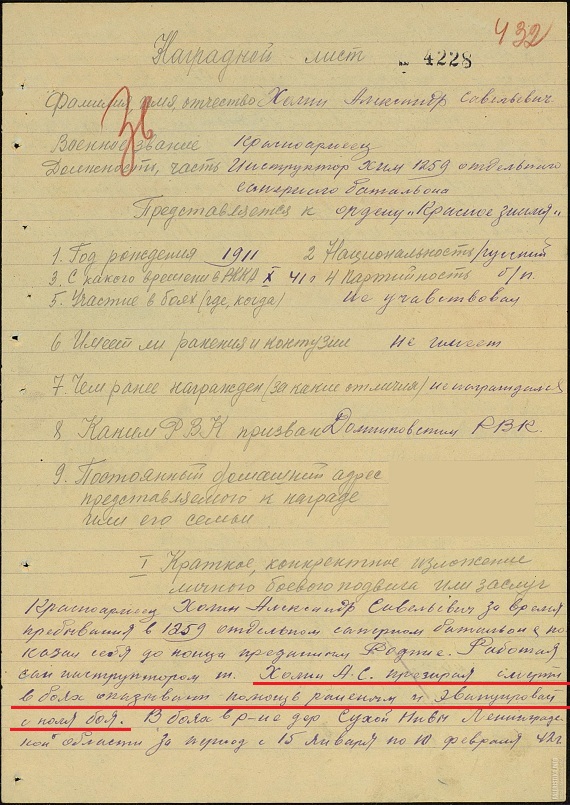 432
Наградной лист № 4228
Фамилия, имя, отчество Холин Александр Савельевич
Зв
Военное звание Красноармеец
Должность, часть Инструктор Хим 1259 отдельного
саперного батальона
Представляется к ордену "Красное знамя"
1. Год рождения 1911 2 Национальность русский
3. С какого времени в РККА X 41 г 4 Партийность б/п.
5. Участие в боях (где, когда) не учавствовал
6 Имеет ли ранения и контузии не имеет
7. Чем ранее награжден (за какие отличия) не награждался
8 Каким РВК призван РВК.
9. Постоянный домашний адрес
представляемого к награде
или его семьи
I Краткое, конкретное изложение
личного боевого подвига или заслуг
Красноармеец Холин Александр Савельевич за время
пребывания в 1259 отдельном саперном батальоне по-
казал себя до конца преданным Родине. Работая
сан инструктором т. Холин А.С. презирая смерть
в боях оказывает помощь раненым и эвакуировал
с поля боя. В боях в р-не дер Сухой Нивы Ленинград-
кой области за период с 15 января по 10 февраля 42 г